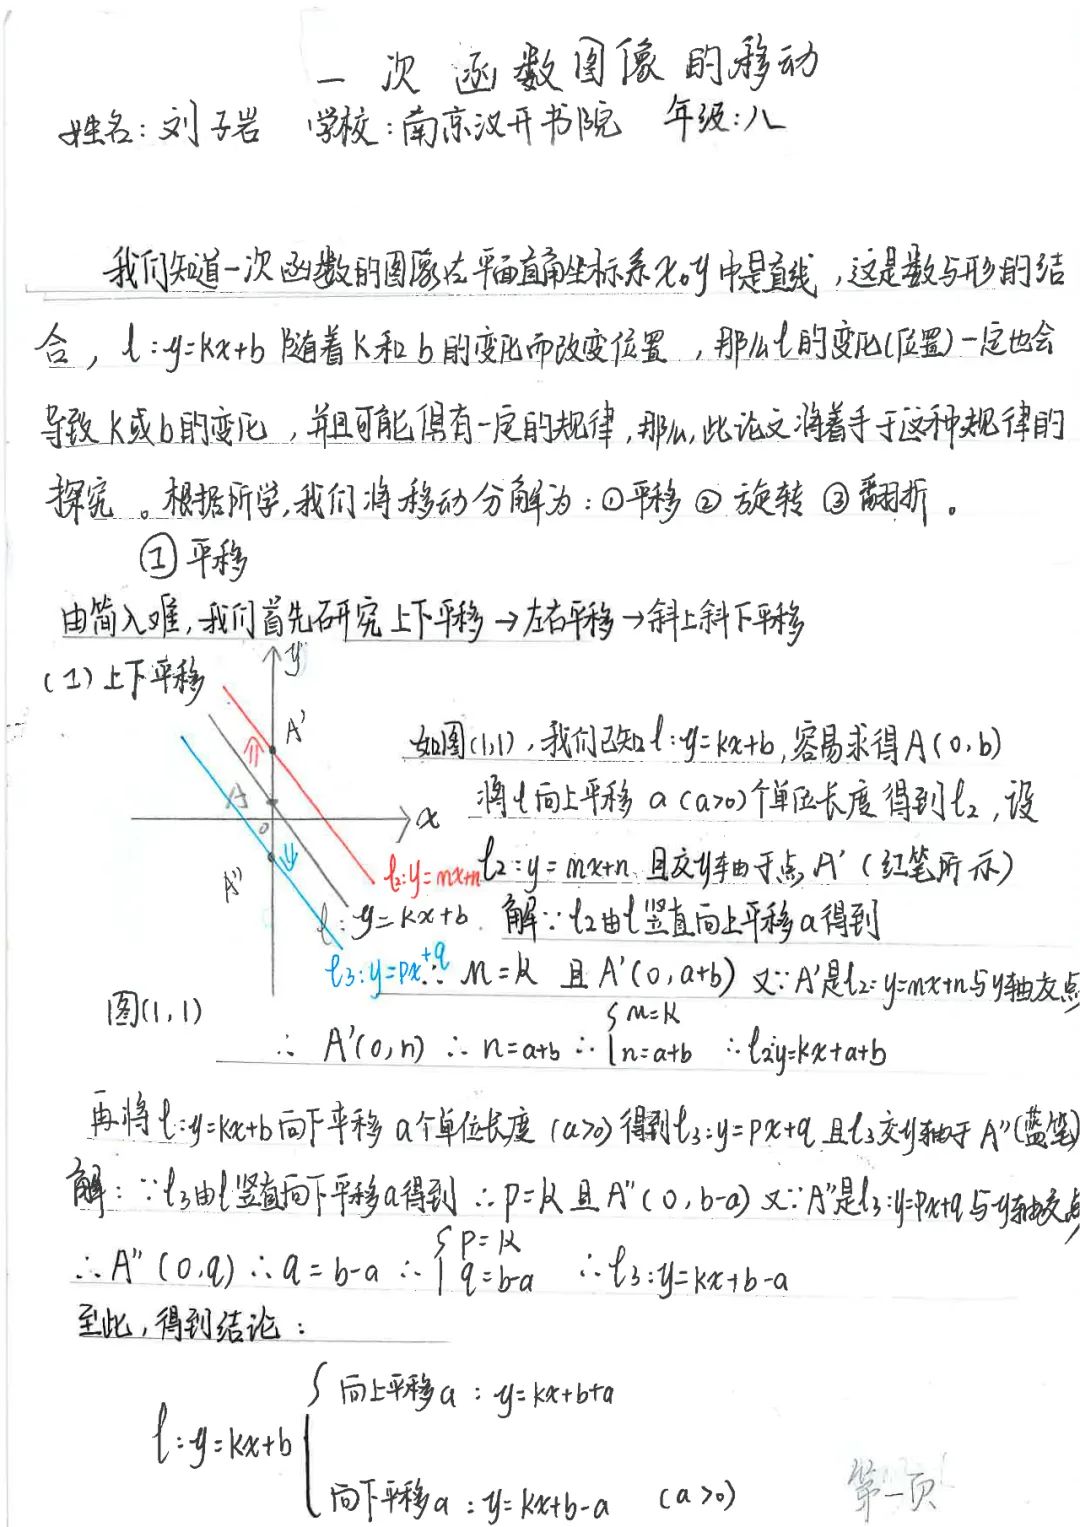 一次函数图像的移动
姓名：刘子岩 学校：南京汉开书院 年级：八
我们知道一次函数的图像在平面直角坐标系xoy中是直线，这是数与形的结
合，l：y=kx+b随着k和b的变化而改变位置，那么l的变化(位置)一定也会
导致k或b的变化，并且可能俱有一定的规律，那么，此论文将着手于这种规律的
探究。根据所学，我们将移动分解为：①平移②旋转③翻折。
①平移
由简入难，我们首先研究上下平移→左右平移→斜上斜下平移
(1)上下平移
y
A'
A
o
x
A''
l2:y=mx+n
l:y=kx+b
l3:y=px+q
图(1,1)
如图(1,1)，我们已知l:y=kx+b，容易求得A(0,b)
将l向上平移a(a>0)个单位长度得到l2，设
l2:y=mx+n且交y轴于点A'(红笔所示)
解：∵l2由l竖直向上平移a得到
∴m=k且A'(0,a+b)又∵A'是l2:y=mx+n与y轴交点
∴A'(0,n)∴n=a+b∴{m=k n=a+b ∴l2:y=kx+a+b
再将l:y=kx+b向下平移a个单位长度(a>0)得到l3:y=px+q且l3交y轴于A''(蓝笔)
解：∵l3由l竖直向下平移a得到∴p=k且A''(0,b-a)又∵A''是l3:y=px+q与y轴交点
∴A''(0,q)∴q=b-a∴{p=k q=b-a ∴l3:y=kx+b-a
至此，得到结论：
l:y=kx+b
向上平移a：y=kx+b+a
向下平移a：y=kx+b-a (a>0)
第一页